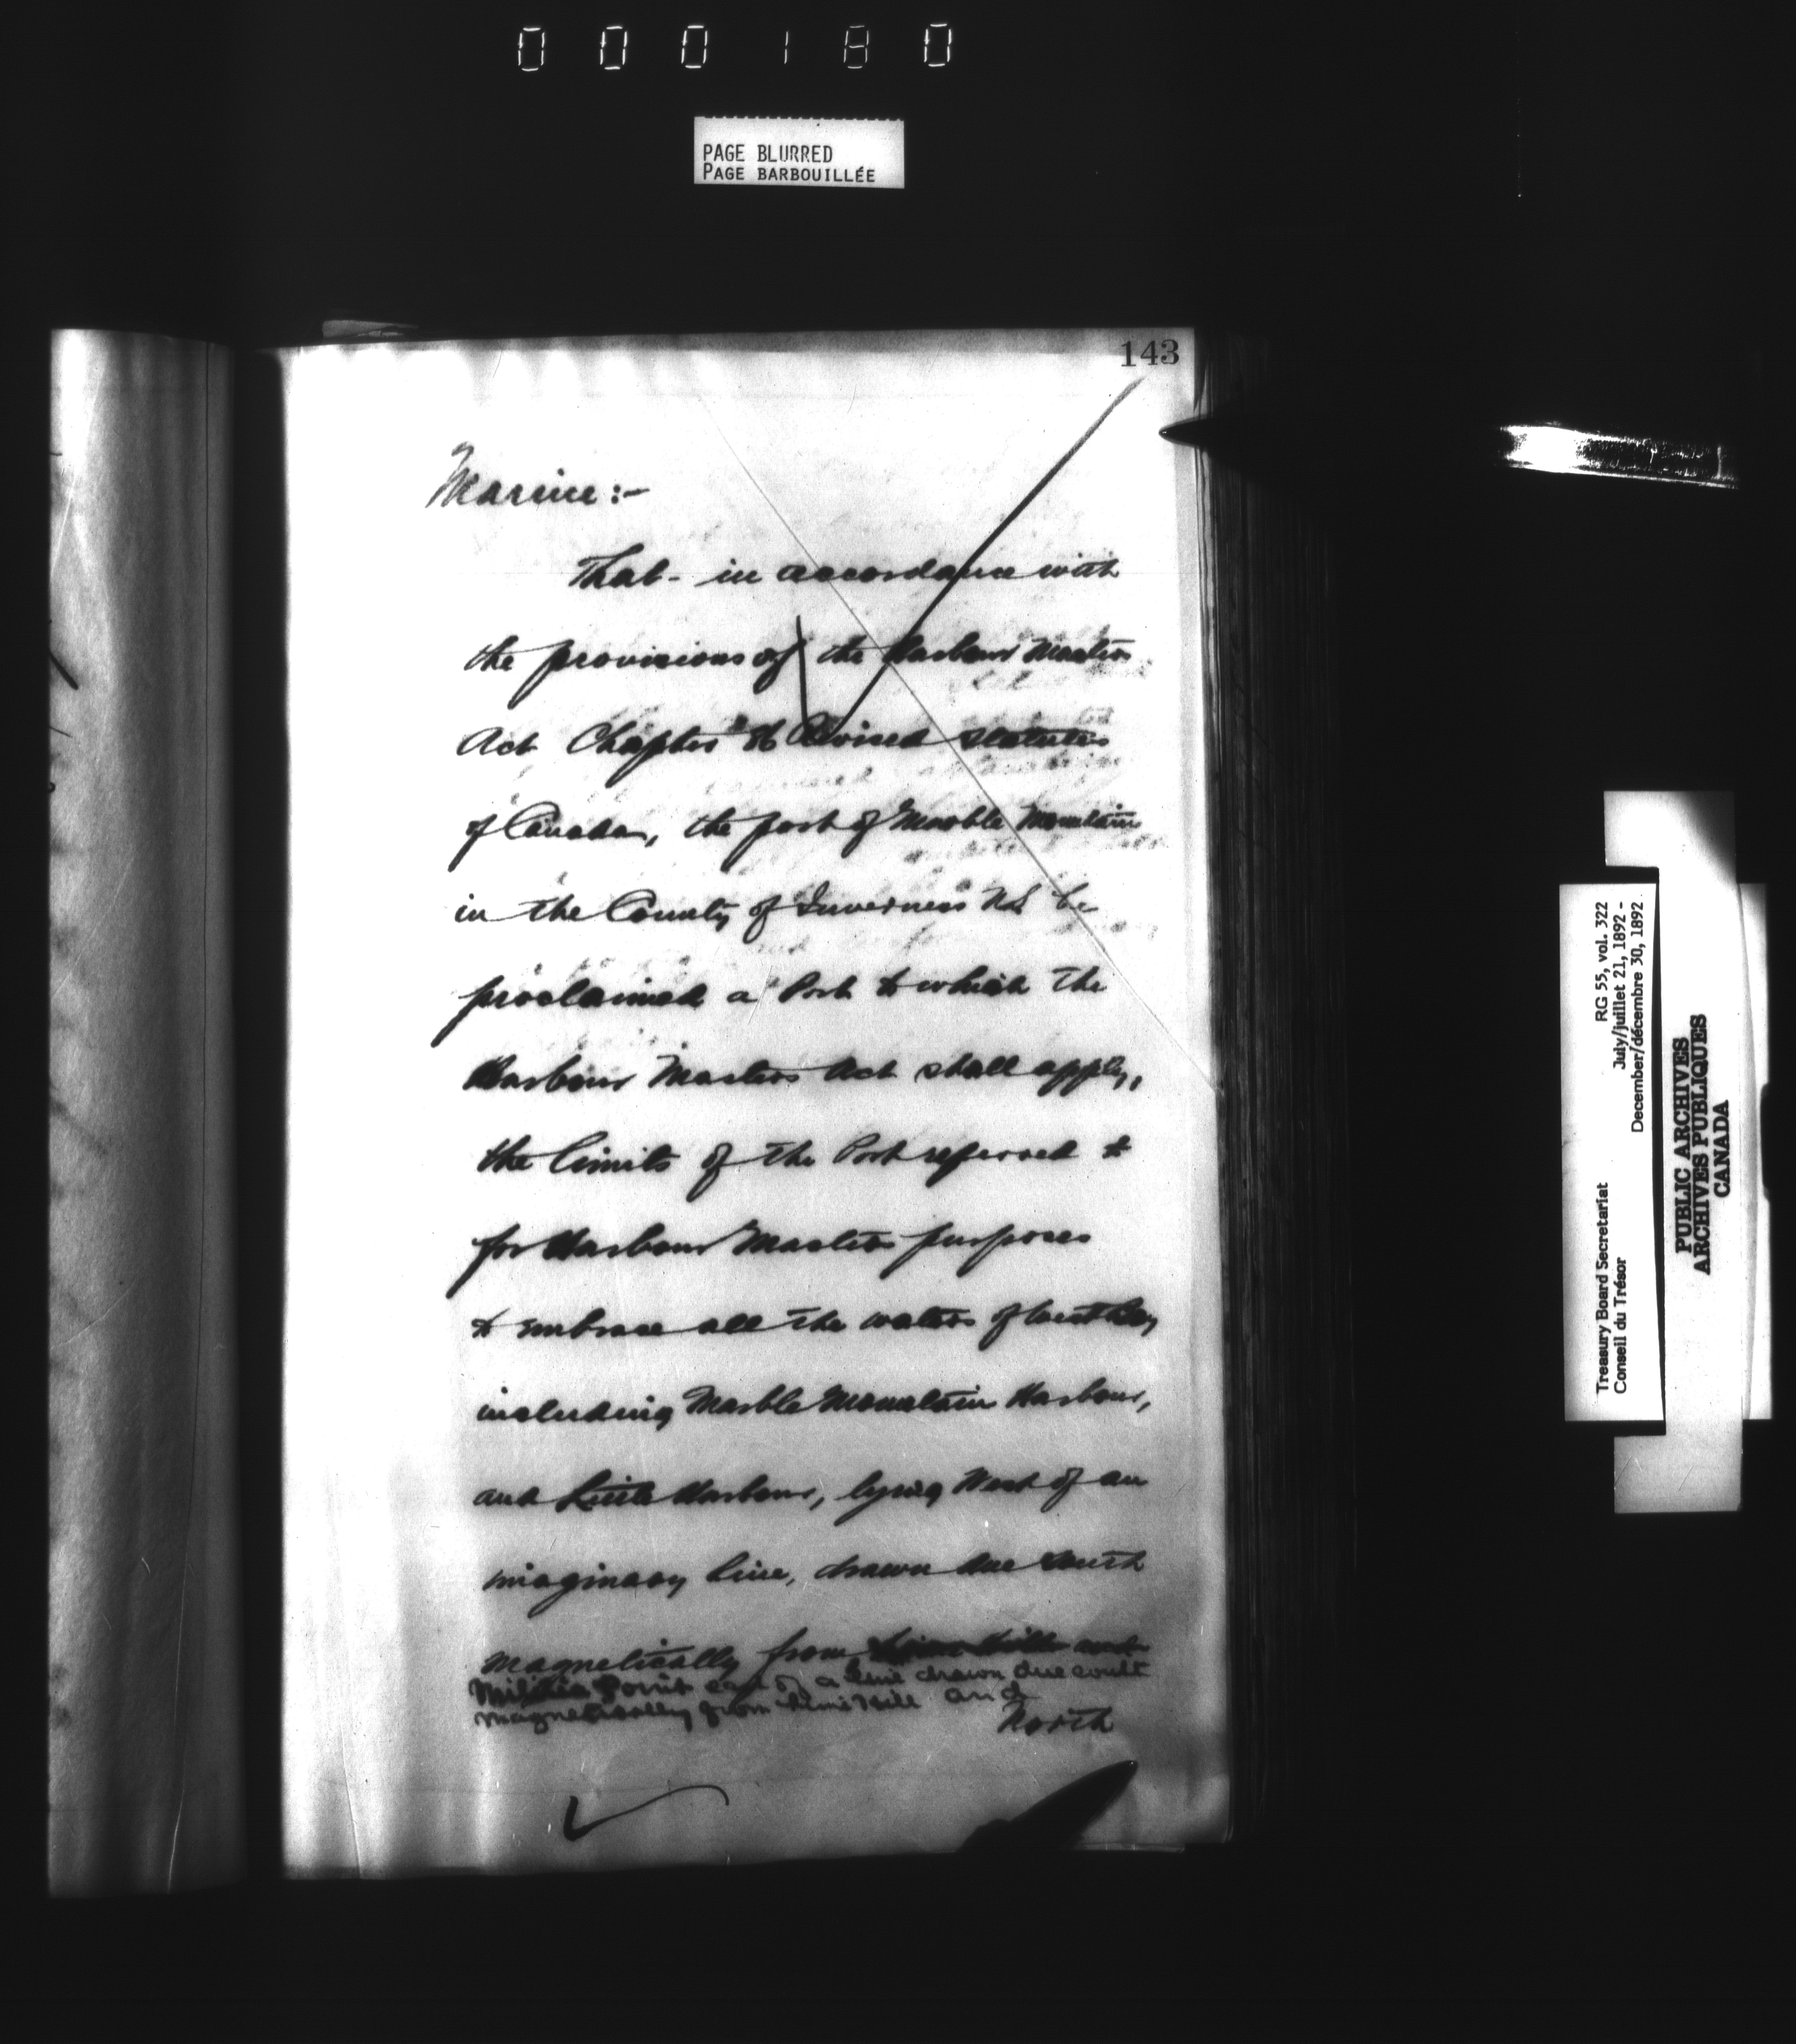 000180
PAGE BLURRED
PAGE BARBOUILLÉE
143
Marine:-
That - in accordance with
the provisions of the Harbour Masters
Act Chapter 86 Revised Statutes
of Canada, the port of Marble Mountain
in the County of Inverness NS be
proclaimed a Port to which the
Harbour Masters Act shall apply,
the limits of the Port referred to
for Harbour Masters purposes
to embrace all the waters of West Bay
including Marble Mountain Harbour,
and Little Harbour, lying West of an
imaginary line, drawn due South
magnetically from
Point east of a line drawn due south
magnetically from Lime Hill and
North
Treasury Board Secretariat RG 55, vol. 322
Conseil du Trésor July/juillet 21, 1892 -
December/décembre 30, 1892
PUBLIC ARCHIVES
ARCHIVES PUBLIQUES
CANADA